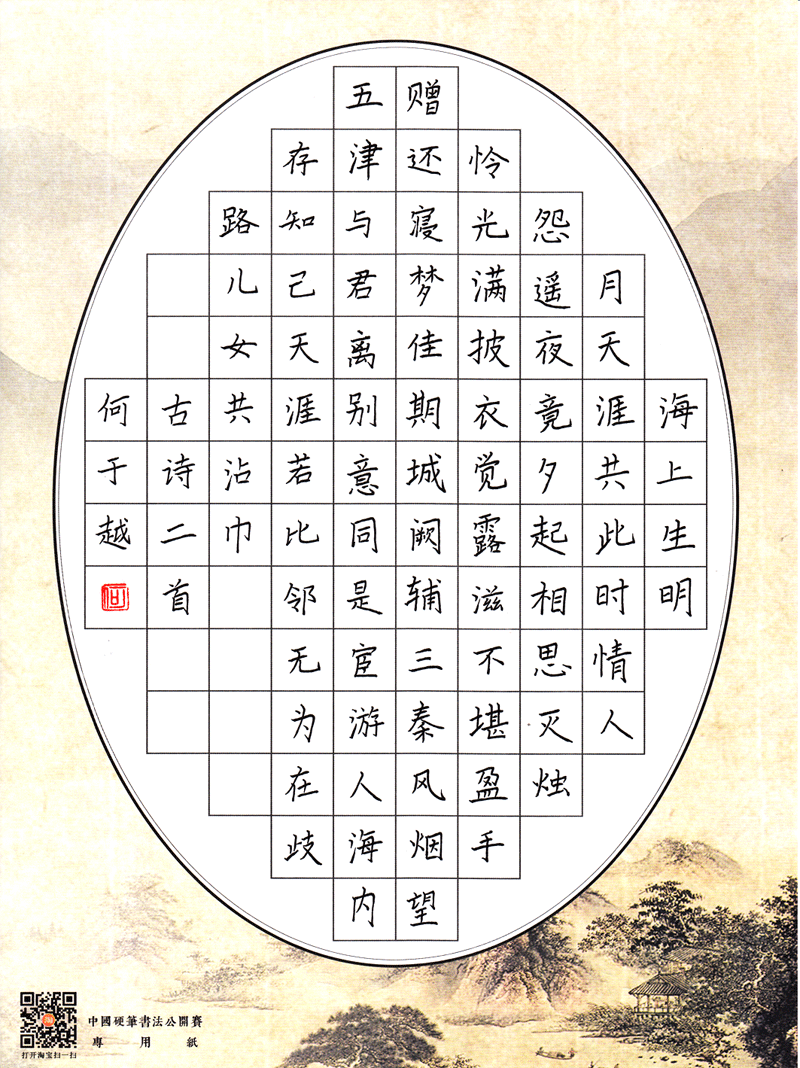 海上生明
月天涯共此时情人
怨遥夜竟夕起相思灭烛
怜光满披衣觉露滋不堪盈手
赠还寝梦佳期城阙辅三秦风烟望
五津与君离别意同是宦游人海内
存知己天涯若比邻无为在歧
路儿女共沾巾
古诗二首
何于越
中國硬筆書法公開賽
專用紙
打开淘宝扫一扫